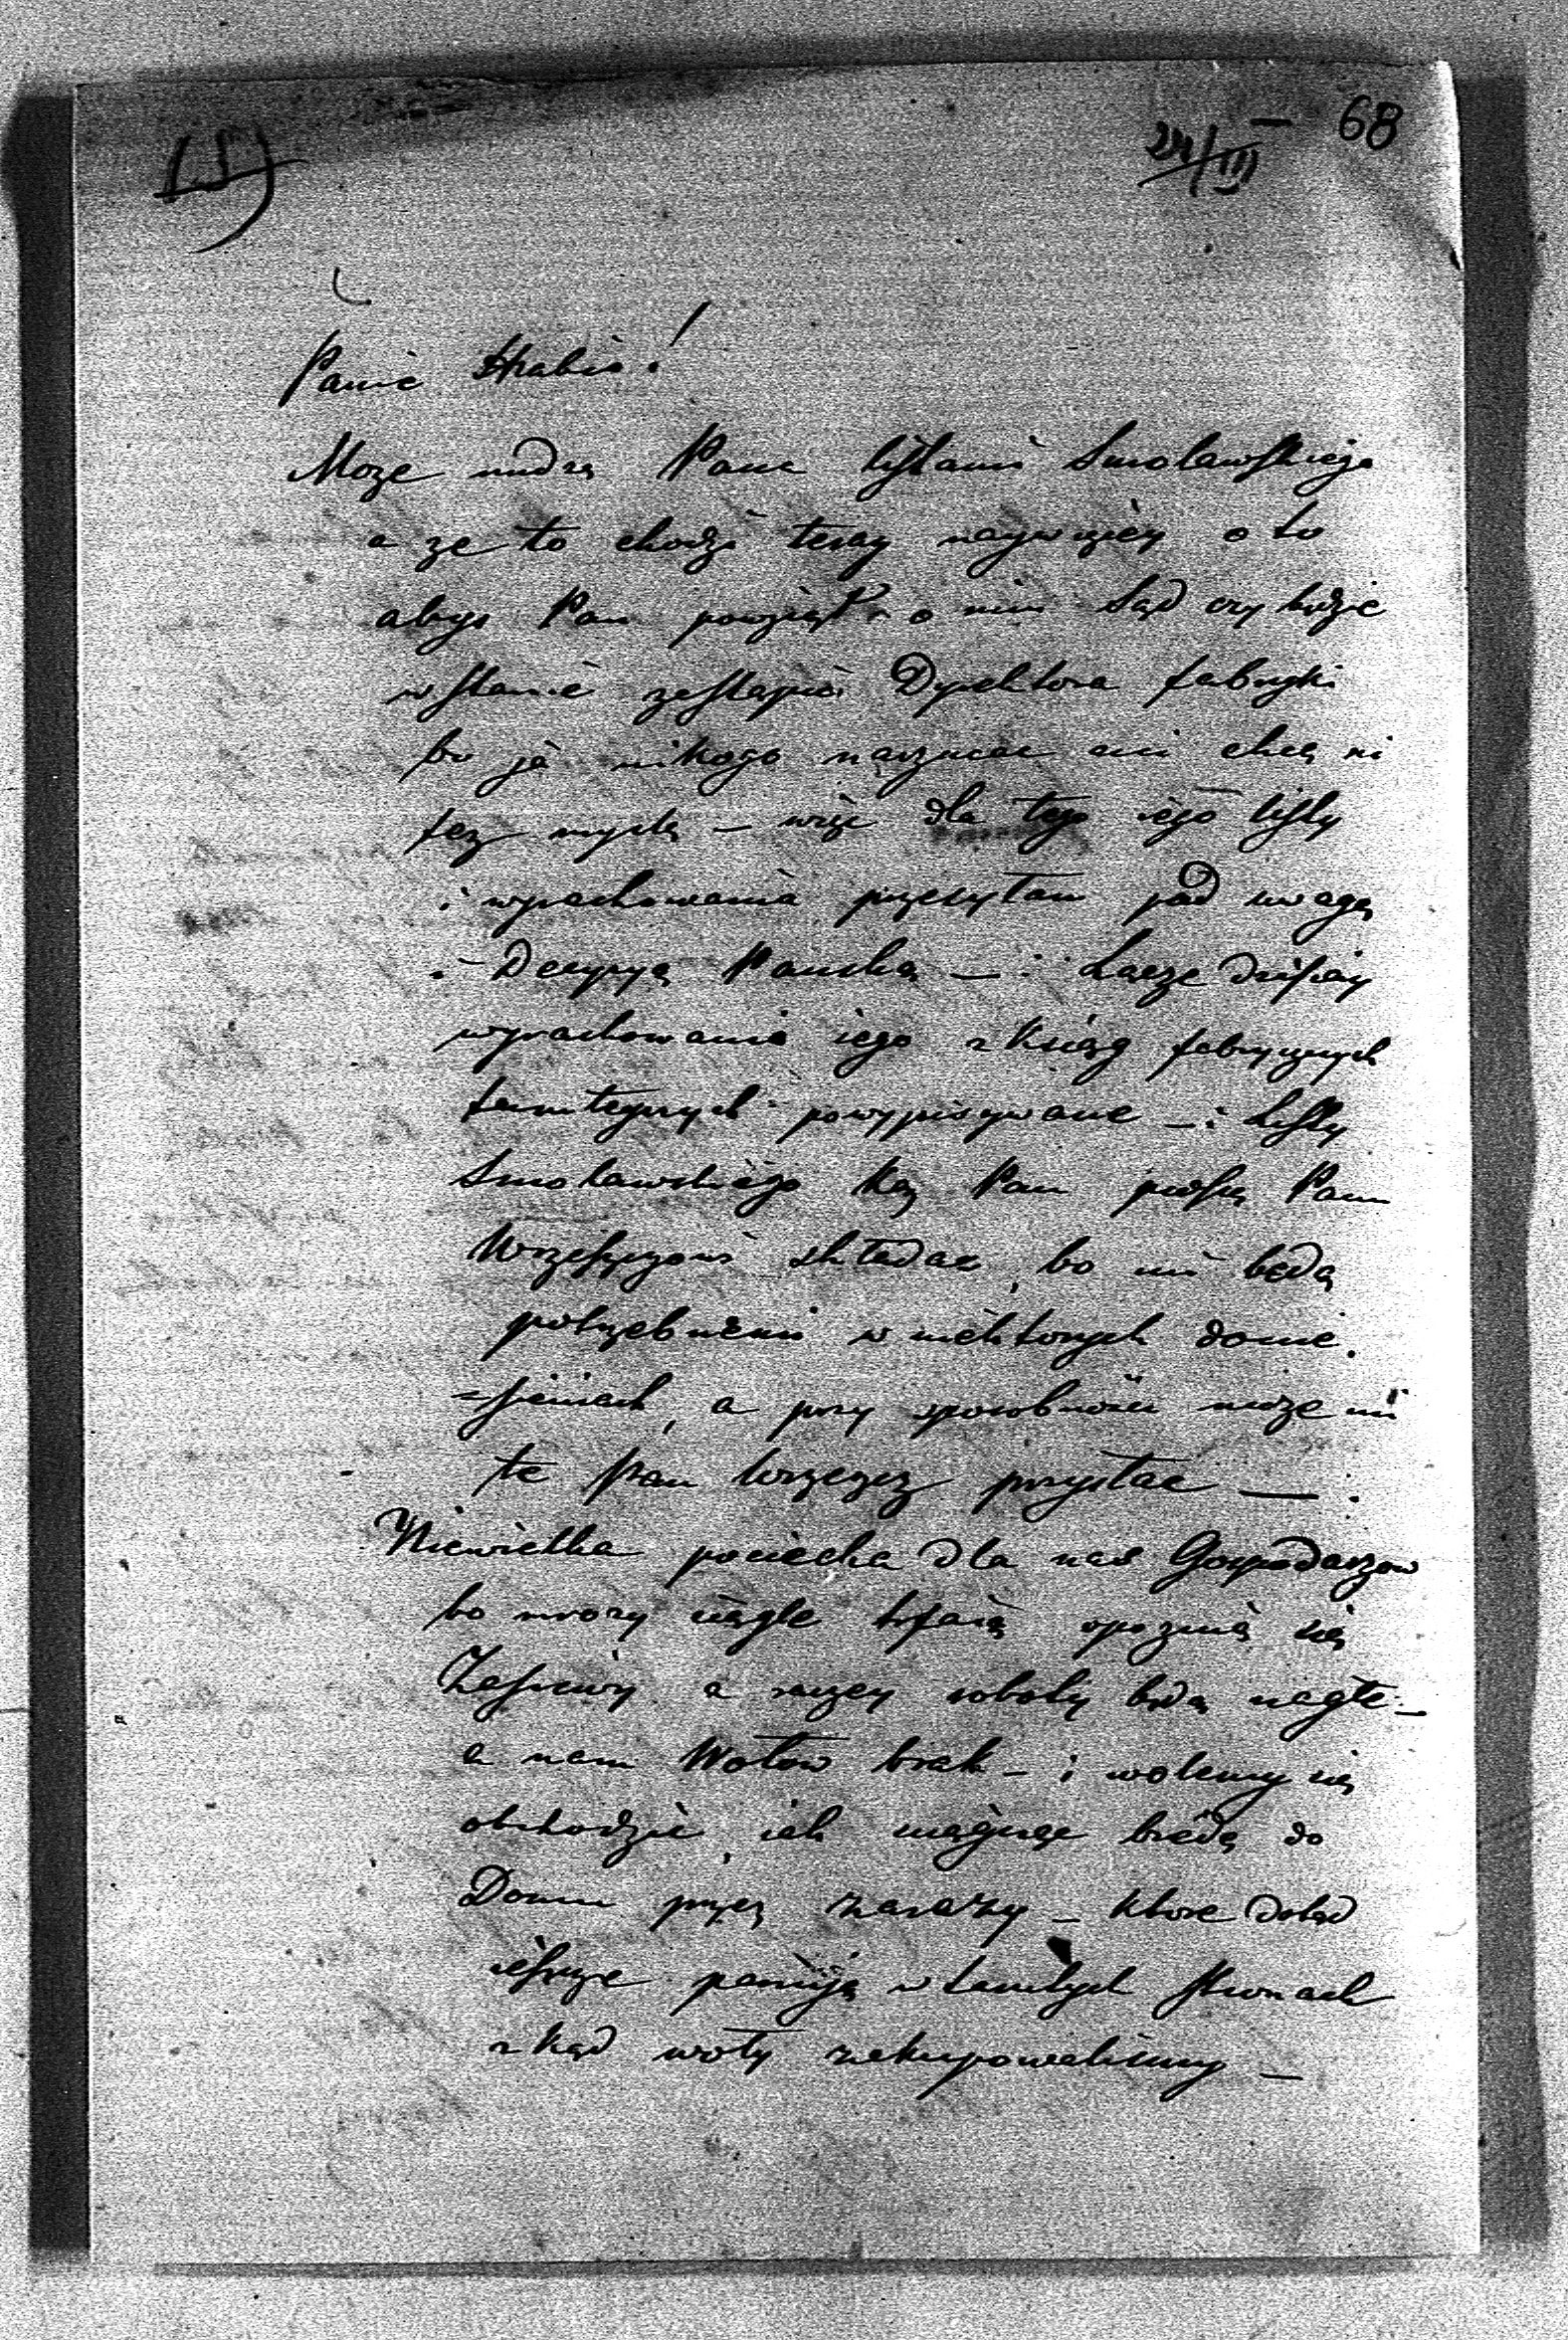 (15)
24/III — 68
Panie Hrabio!
Moze nudzą Pana listami Smolawskiego
a ze to chodzi teraz naywięcey o to
abyś Pan powziął o nim Sąd czy będzie
w stanie zastąpić Dyrektora fabryki
bo ja nikogo narzucac ani chcę ni
tez myslę — więc dla tego iego listy
i wyrachowania przesyłam pod uwagę
i Decyzyą Pańską — : Łącze dzisiay
wyrachowania iego z Ksiąg fabrycznych
tamtegszych powypisywane — : Listy
Smoławskiego Kaz Pan proszę Panu
składac, bo mi będą
potrzebnemi w niektorych donie.
=sieniach, a przy sposobności moze mi
te Pan przysłac — :
Niewielka pociecha dla nas Gospodarzow
bo mrozy ciągle trwaią opoznią się
Zasiewy a razem roboty będą nagłe —
a nam Wołow brak — i wolemy się
obchodzić, iak ciągnąc biedę do
Domu przez zarazy — ktore dotąd
ieszcze panuią w tamtych stronach
z kąd woły zakupowalismy —